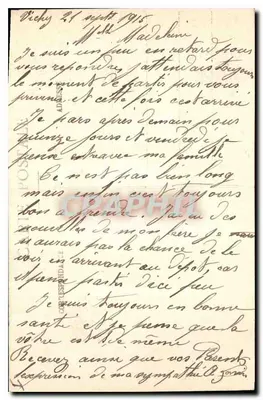 Vichy 21 sept 1915
Mlle Madeleine
Je suis un peu en retard pour
vous repondre j'attendais toujours
le moment de partir pour vous
prevenir et cette fois cest arrivé
Je pars après demain pour
quinze jours et vendredi je
pense être avec ma famille
Ce n'est pas bien long
mais enfin c'est toujours
bon a prendre J'ai eu des
nouvelles de mon frere je
n'aurais pas la chance de le
voir en arrivant au dépôt, car
il pense partir d'ici peu
Je suis toujours en bonne
santé et je pense que la
vôtre est de même
Recevez ainsi que vos Parents
l'expression de ma sympathie